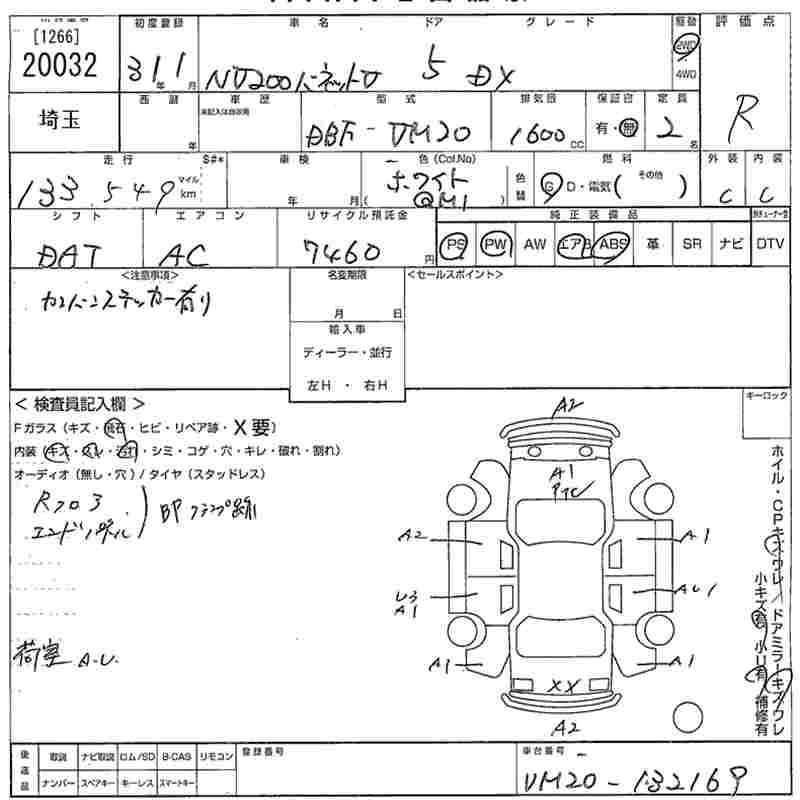 [1266]
20032
初度登録
31年1月
車名
NV200バネットV
ドア
5
グレード
DX
駆動
2WD
4WD
評価点
R
埼玉
西暦
年
車歴
未記入は自家用
型式
DBF-VM20
排気量
1600cc
保証書
有・無
定員
2名
走行
133,549
マイル
km
S#*
車検
年 月
色(Col.No)
ホワイト
(QM1)
色替
燃料
G D・電気( その他 )
外装
C
内装
C
シフト
DAT
エアコン
AC
リサイクル預託金
7460円
純正装備品
PS PW AW エアB ABS 革 SR ナビ
DTV
<注意事項>
カンバンステッカー有り
名変期限
月 日
輸入車
ディーラー・並行
左H ・ 右H
<セールスポイント>
< 検査員記入欄 >
Fガラス(キズ・飛石・ヒビ・リペア跡・X要)
内装(キズ・スレ・汚れ・シミ・コゲ・穴・キレ・破れ・割れ)
オーディオ(無し・穴)/タイヤ(スタッドレス)
Rフロア
エンドパネル
BPクランプ跡
荷室 A.U.
キーロック
A2
A1
A2
A1
U3
A1
AU1
A1
A1
XX
A2
ホイル・CPキズワレ/ドアミラーキズワレ
小キズ有 小U有 補修有
後送品
取説 ナビ取説 ロム/SD B-CAS リモコン
ナンバー スペアキー キーレス スマートキー
登録番号
車台番号
VM20-132169